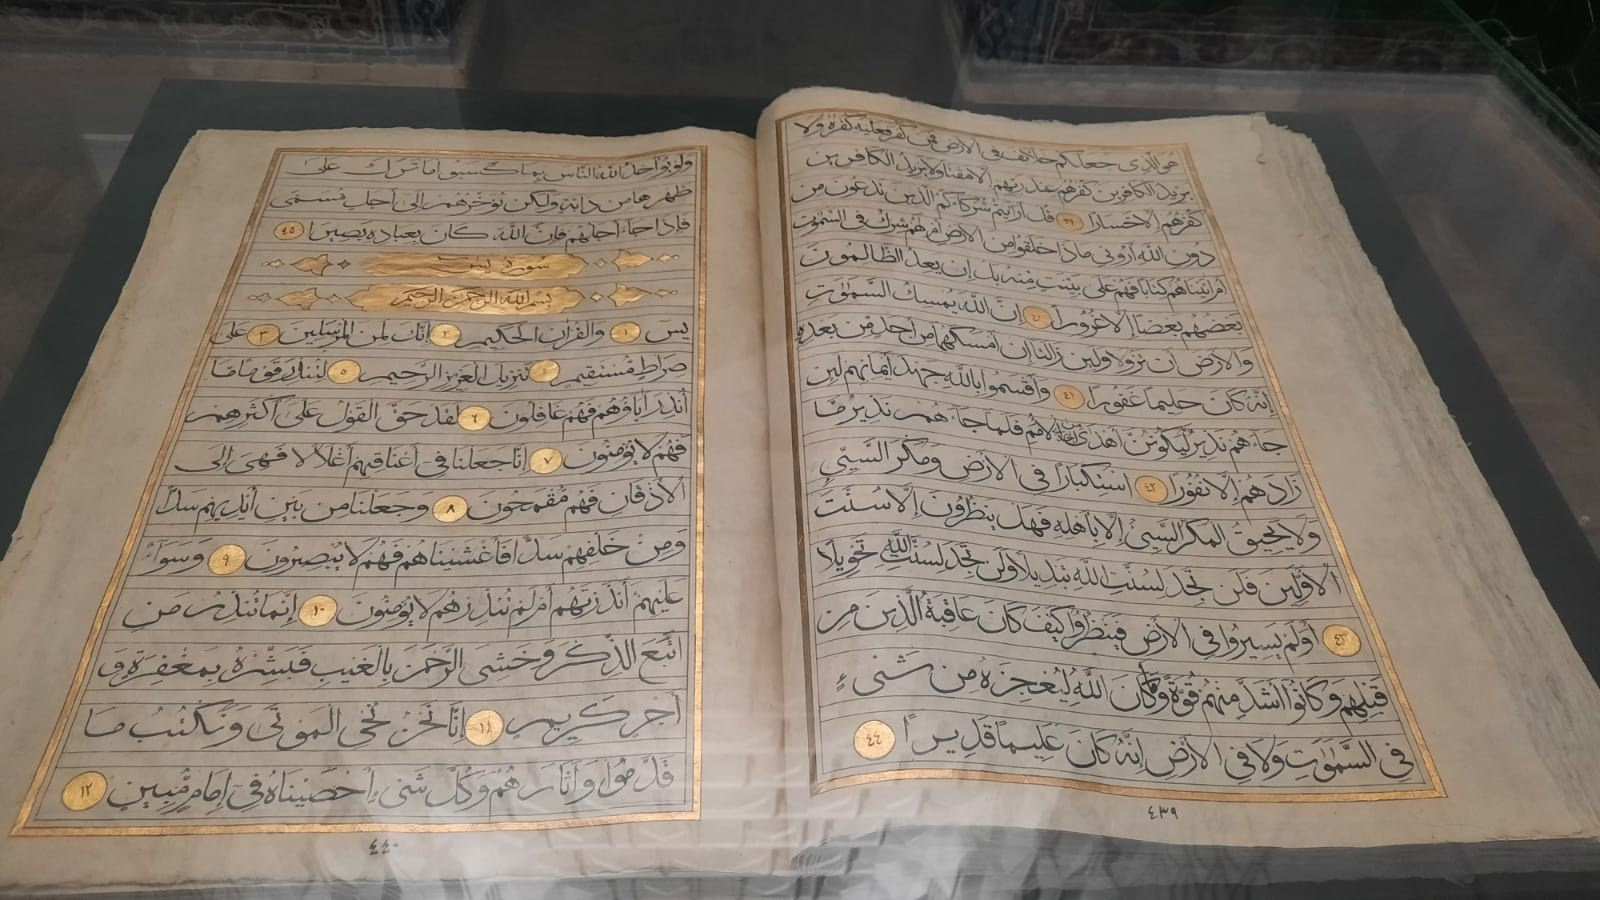 هو الذي جعلكم خلائف في الأرض فمن كفر فعليه كفره ولا
يزيد الكافرين كفرهم عند ربهم إلا مقتا ولا يزيد الكافرين
كفرهم إلا خسارا ٣٩ قل أرأيتم شركاءكم الذين تدعون من
دون الله أروني ماذا خلقوا من الأرض أم لهم شرك في السموت
أم اتيناهم كتابا فهم على بينت منه بل إن يعد الظالمون
بعضهم بعضا إلا غرورا ٤٠ إن الله يمسك السموت
والأرض أن تزولا ولئن زالتا إن أمسكهما من أحد من بعده
إنه كان حليما غفورا ٤١ وأقسموا بالله جهد أيمانهم لئن
جاءهم نذير ليكونن أهدى من إحدى الأمم فلما جاءهم نذير ما
زادهم إلا نفورا ٤٢ استكبارا في الأرض ومكر السيئ
ولا يحيق المكر السيئ إلا بأهله فهل ينظرون إلا سنت
الأولين فلن تجد لسنت الله تبديلا ولن تجد لسنت الله تحويلا
٤٣ أولم يسيروا في الأرض فينظروا كيف كان عاقبة الذين من
قبلهم وكانوا أشد منهم قوة وما كان الله ليعجزه من شيء
في السموت ولا في الأرض إنه كان عليما قديرا ٤٤
٤٣٩
ولو يؤاخذ الله الناس بما كسبوا ما ترك على
ظهرها من دابة ولكن يؤخرهم إلى أجل مسمى
فإذا جاء أجلهم فإن الله كان بعباده بصيرا ٤٥
سورة يس
بسم الله الرحمن الرحيم
يس ١ والقرآن الحكيم ٢ إنك لمن المرسلين ٣ على
صراط مستقيم ٤ تنزيل العزيز الرحيم ٥ لتنذر قوما ما
أنذر آباؤهم فهم غافلون ٦ لقد حق القول على أكثرهم
فهم لا يؤمنون ٧ إنا جعلنا في أعناقهم أغلالا فهي إلى
الأذقان فهم مقمحون ٨ وجعلنا من بين أيديهم سدا
ومن خلفهم سدا فأغشيناهم فهم لا يبصرون ٩ وسواء
عليهم أنذرتهم أم لم تنذرهم لا يؤمنون ١٠ إنما تنذر من
اتبع الذكر وخشي الرحمن بالغيب فبشره بمغفرة و
أجر كريم ١١ إنا نحن نحي الموتى ونكتب ما
قدموا وآثارهم وكل شيء أحصيناه في إمام مبين ١٢
٤٤٠